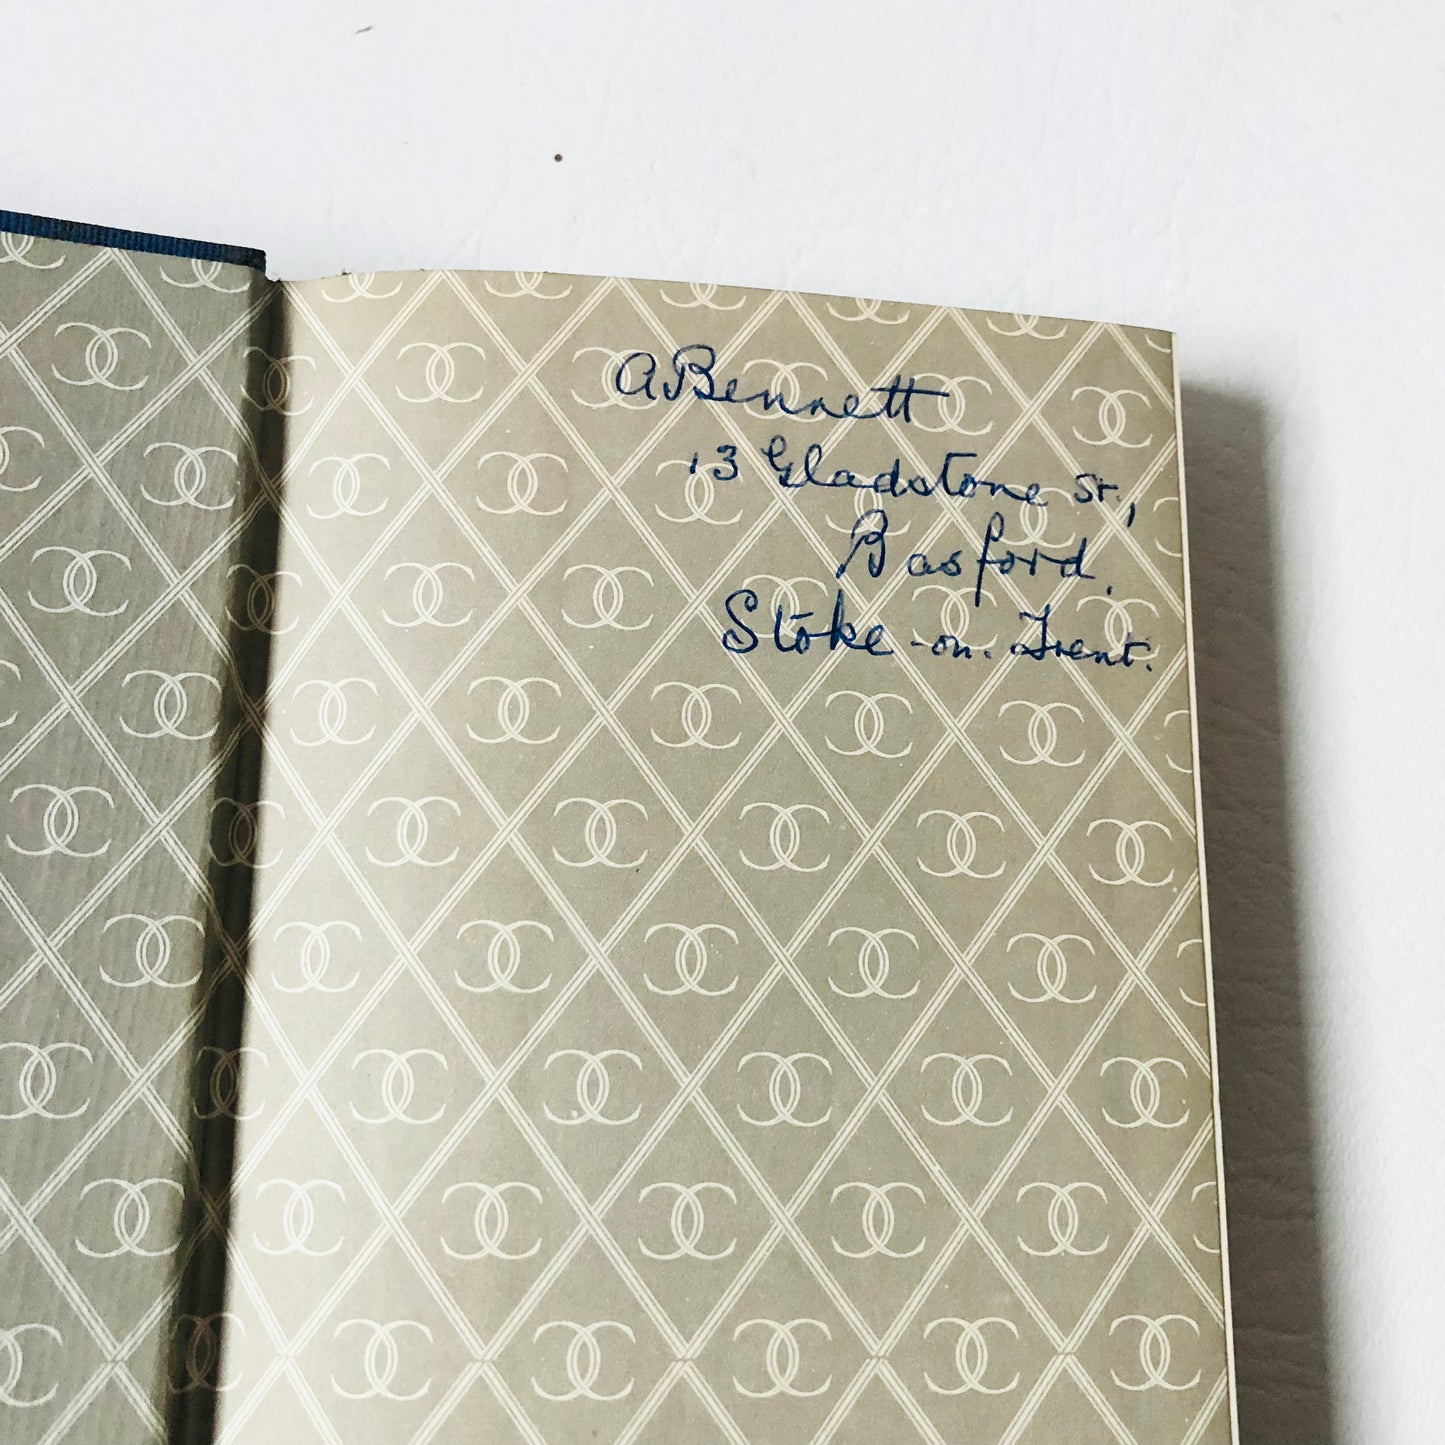 A Bennett
13 Gladstone St.,
Basford.
Stoke-on-Trent.